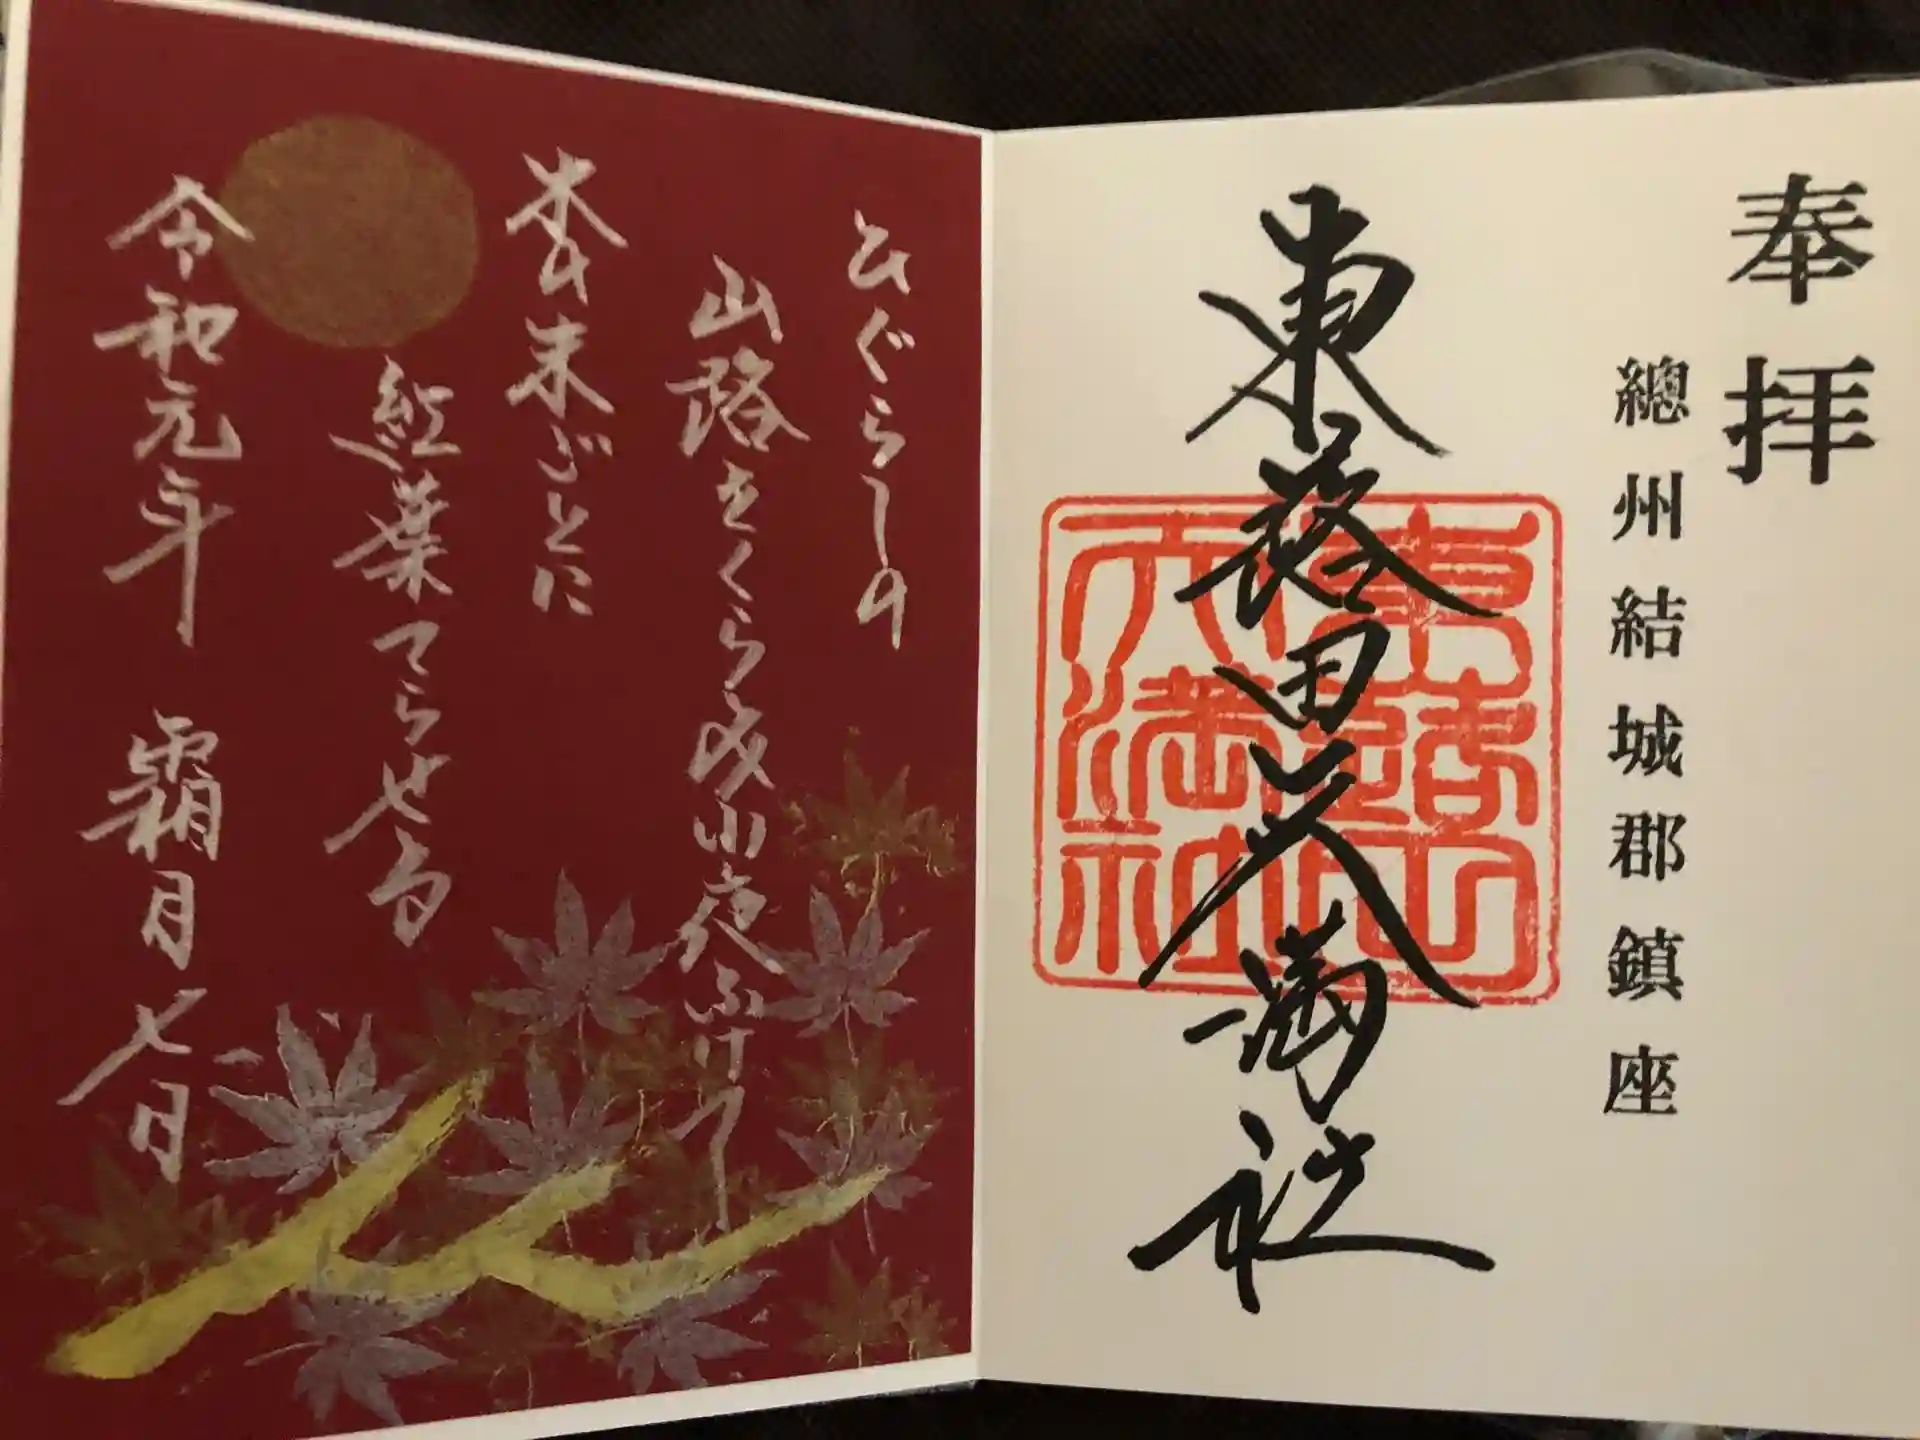 奉拝
總州結城郡鎮座
東蕗田天満社
東蕗田
天満社
ひぐらしの
山路をくらみ小夜ふけて
木の末ごとに
紅葉てらせる
令和元年 霜月七日